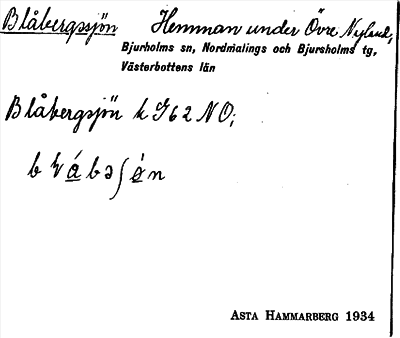 Blåbergssjön Hemman under Övre Nyland,
Bjurholms sn, Nordmalings och Bjurholms tg,
Västerbottens län
Blåbergsjön k J62 NO;
ASTA HAMMARBERG 1934